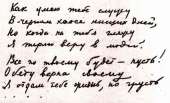 Как умею тебе служу
В черном хаосе нищих дней,
Но когда на тебя гляжу
Я теряю веру в людей.
Все по твоему будет — пусть!
Обету верна своему
Я отдам тебе жизнь, но грусть